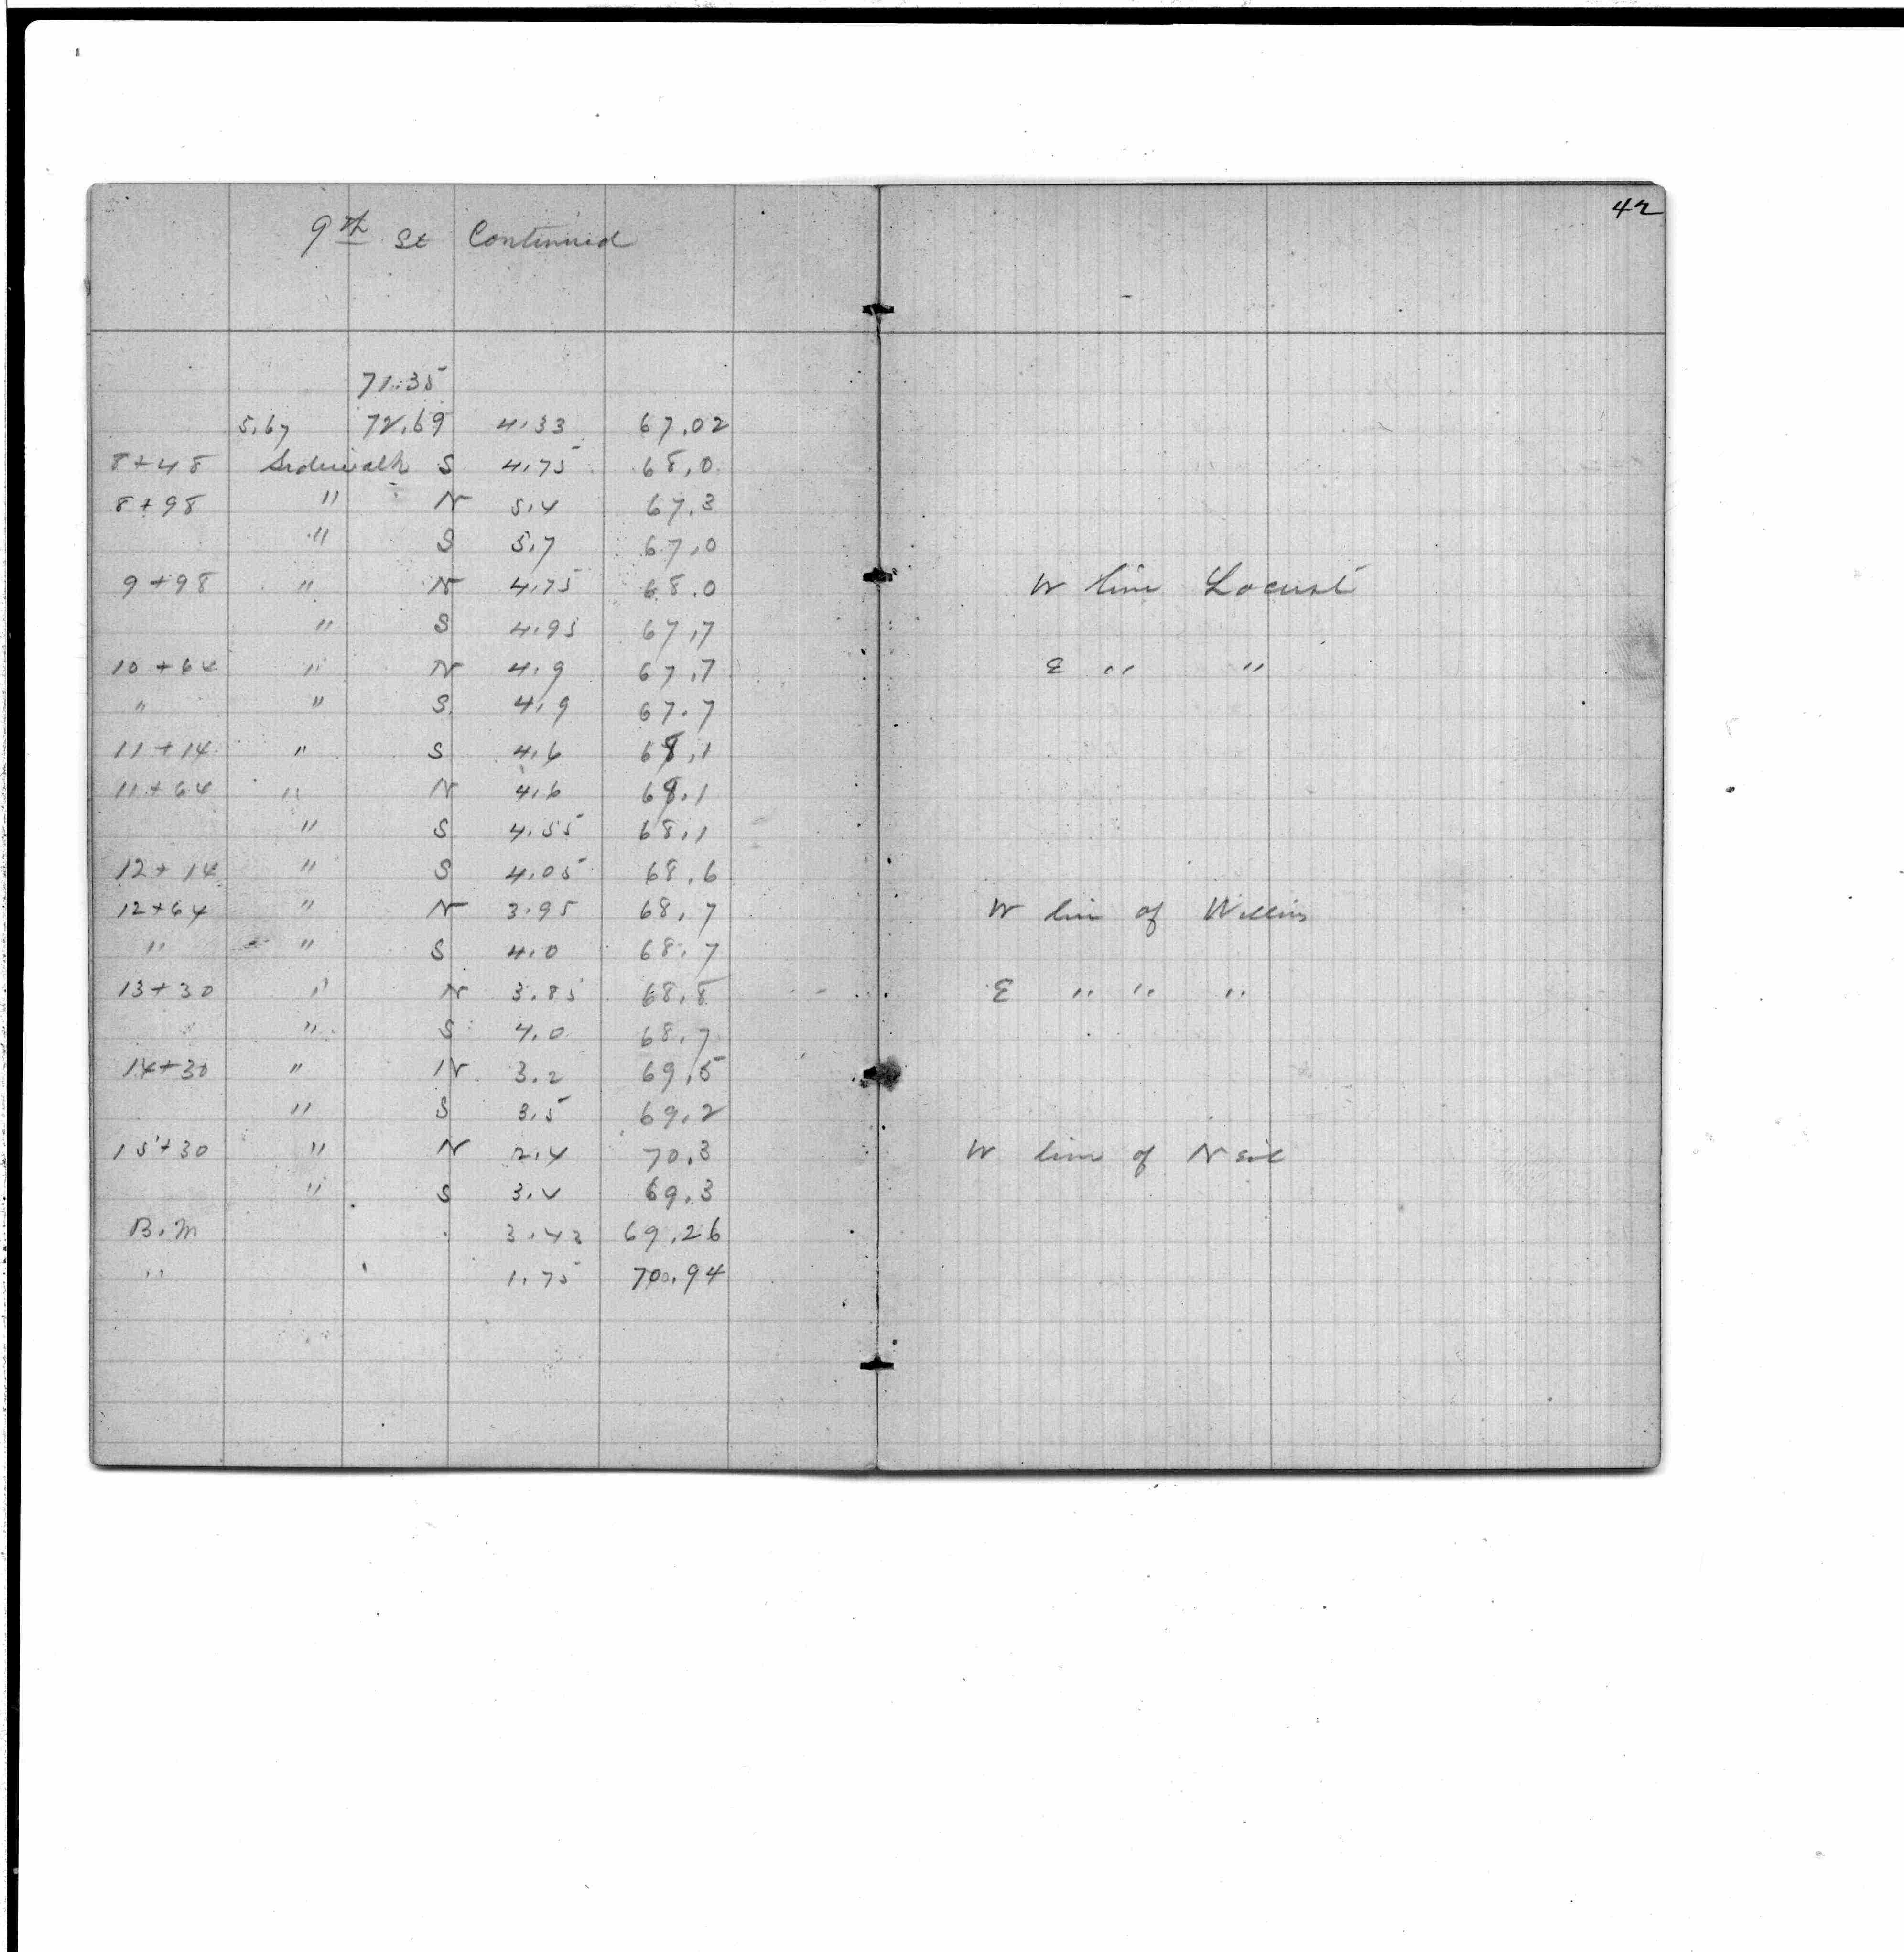 42
9th St Continued
71.35
5.67 72.69 4.33 67.02
8+48 Sidewalk S 4.75 68.0
8+98 " N 5.4 67.3
" S 5.7 67.0
9+98 " N 4.75 68.0 W line Locust
" S 4.95 67.7
10+64 " N 4.9 67.7 E " "
" " S 4.9 67.7
11+14 " S 4.6 68.1
11+64 " N 4.6 68.1
" S 4.55 68.1
12+14 " S 4.05 68.6
12+64 " N 3.95 68.7 W lin of
" " S 4.0 68.7
13+30 " N 3.85 68.8 E " " "
" S 4.0 68.7
14+30 " N 3.2 69.5
" S 3.5 69.2
15+30 " N 2.4 70.3 W line of Neil
" S 3.4 69.3
B.M 3.43 69.26
" 1.75 70.94